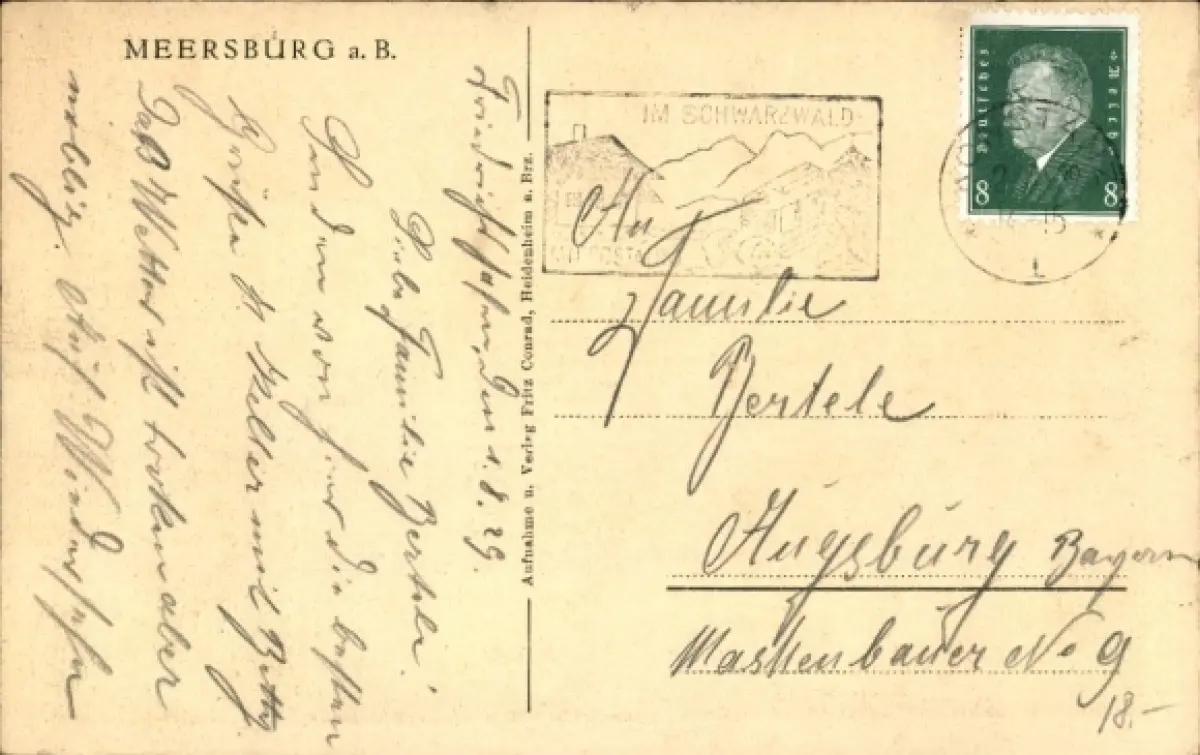 MEERSBURG a. B.
Friedrichshafen, den 1. 8. 29.
Liebe Familie Bertele!
Senden von hier die besten
Grüße H Keller mit Betty
Daß Wetter ist trocken aber
neblig. Auf Wiedersehen
Aufnahme u. Verlag Fritz Conrad, Heidenheim a. Brz.
IM SCHWARZWALD
Deutsches Reich
8 8
An
Familie
Bertele
Augsburg Bayern
Maskenbauer No 9
18.-